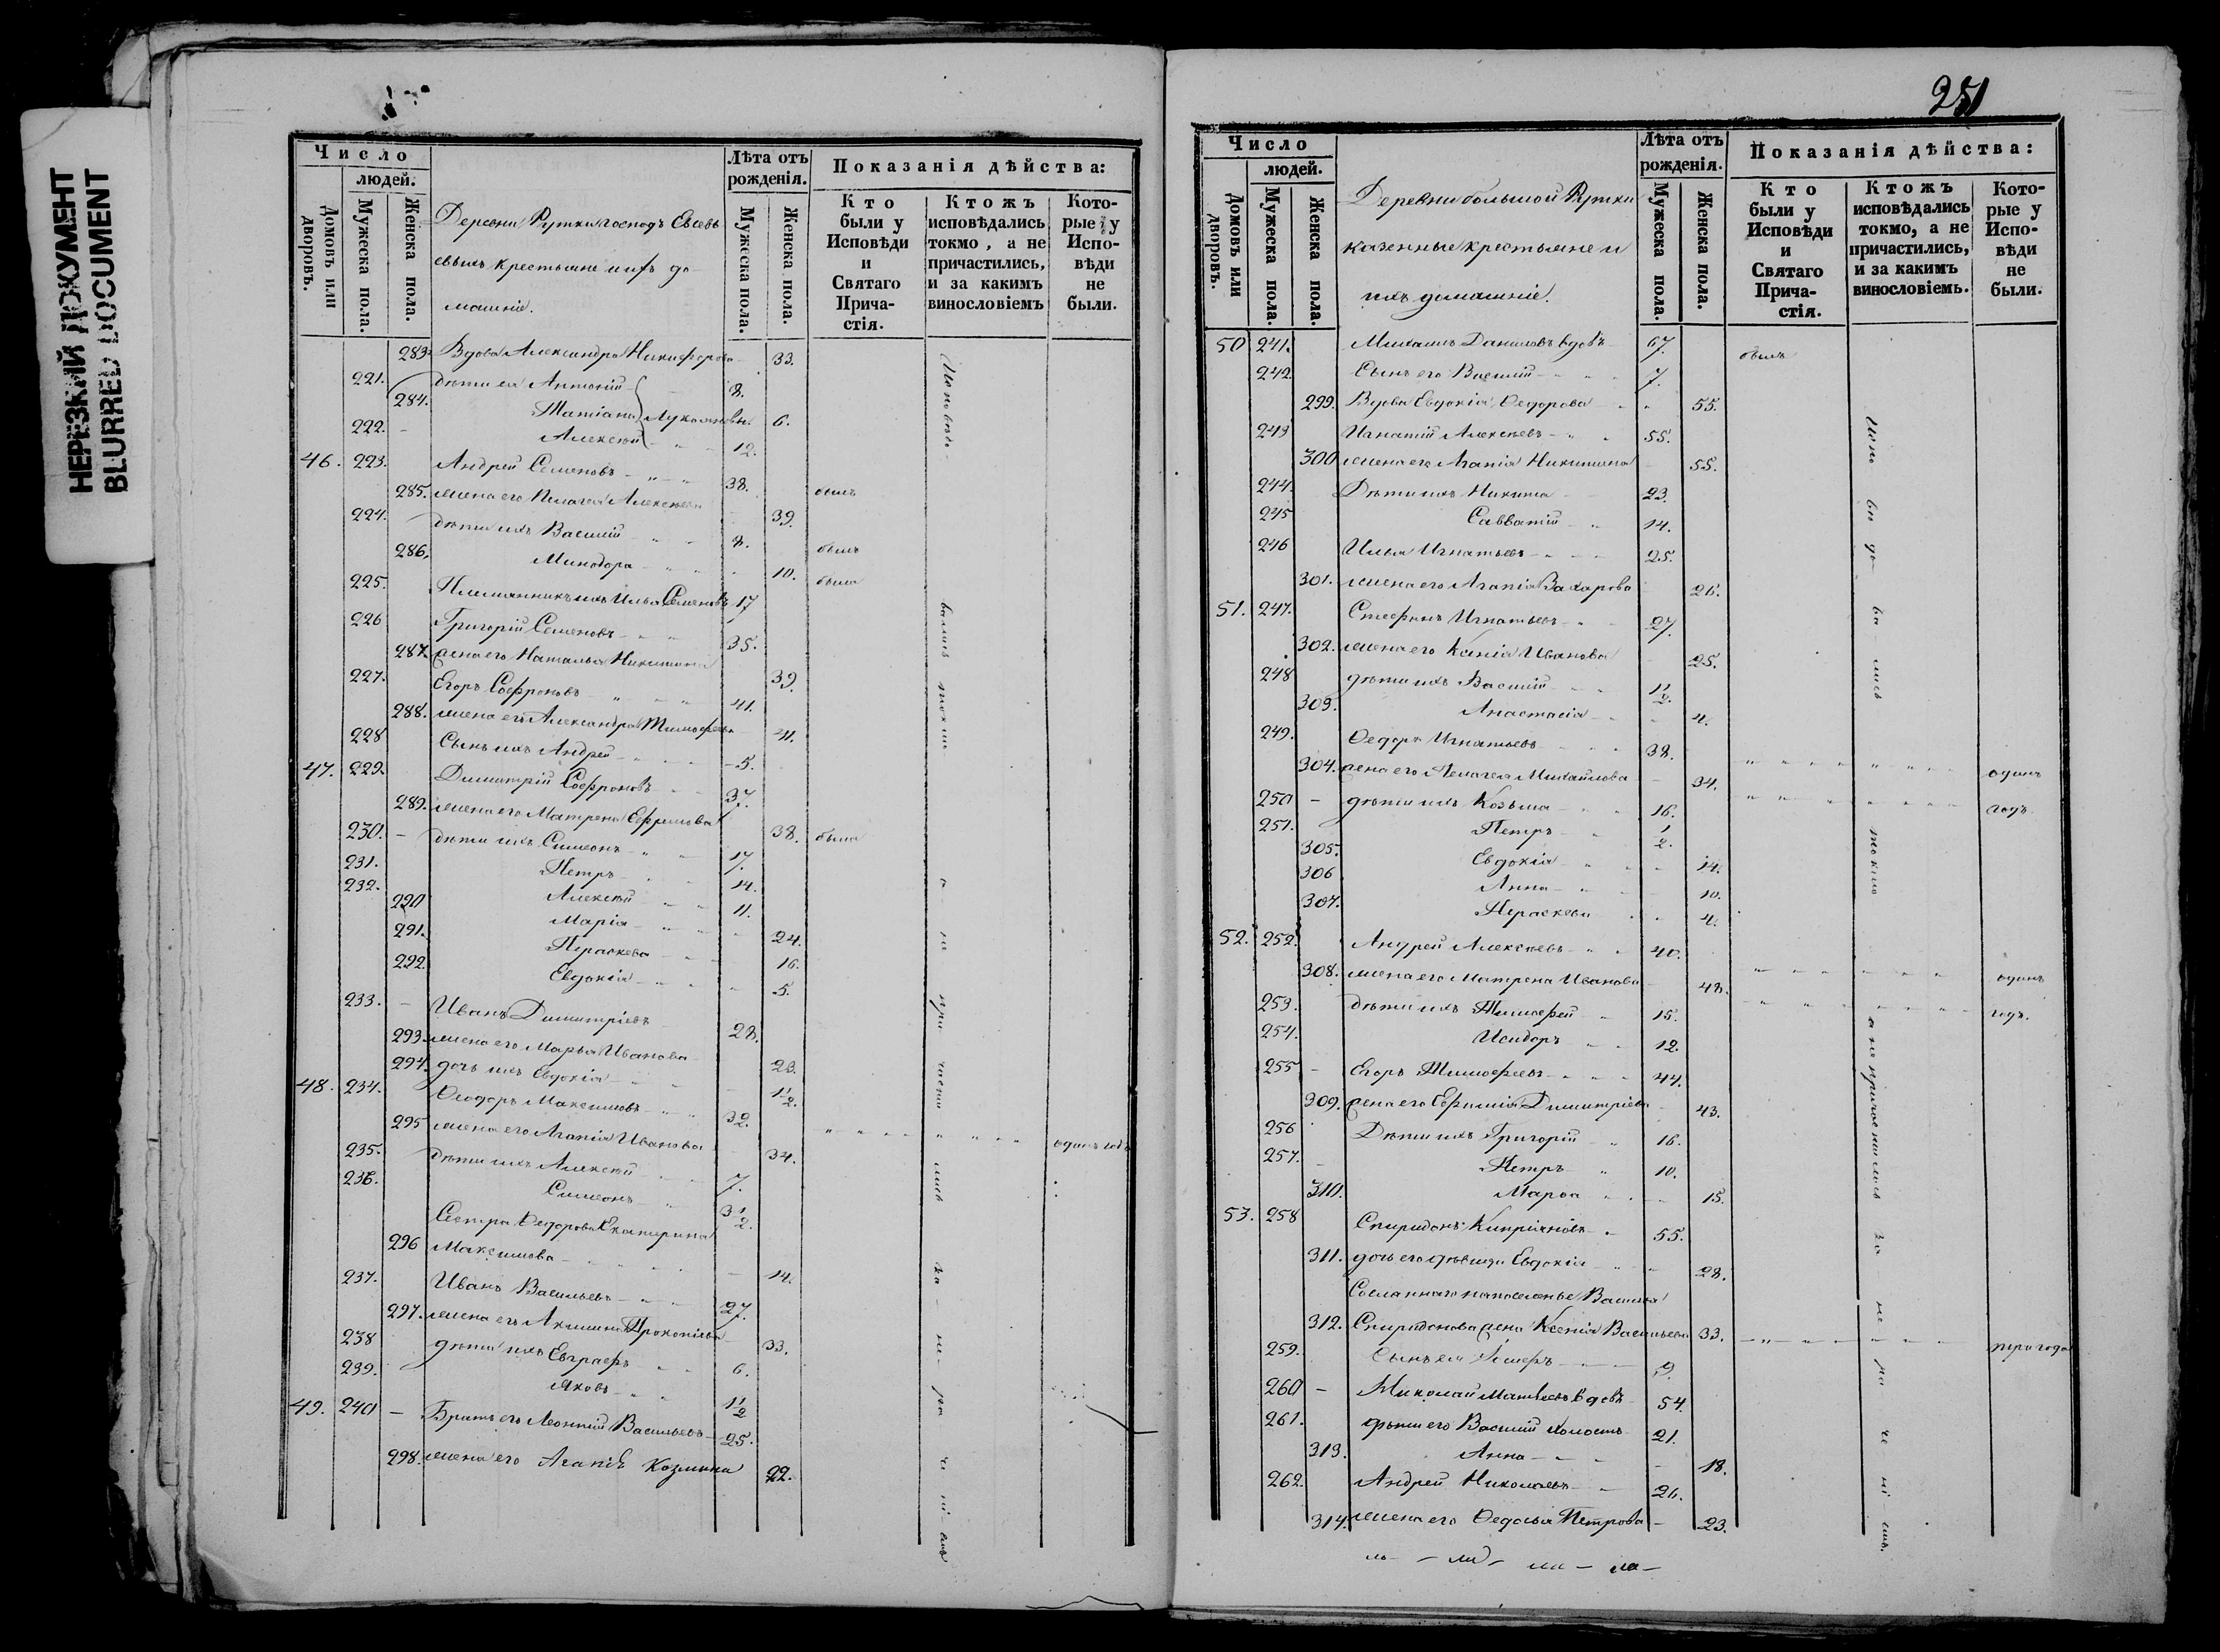 НЕРЕЗКИЙ ДОКУМЕНТ
BLURRED DOCUMENT
Число
людей.
Домовъ или дворовъ.
Мужеска пола.
Женска пола.
Деревни Рутки господъ
крестьяне и ихъ до-
машніе.
Лѣта отъ рожденія.
Мужеска пола.
Женска пола.
Показанія дѣйства:
Кто были у Исповѣди и Святаго Прича-стія.
Ктожъ исповѣдались токмо, а не причастились, и за какимъ винословіемъ
Кото-рые у Испо-вѣди не были.
283. Вдова Александра Никифорова 33.
221. дѣти ея Антоній 8.
284. Татіана 6.
222. Алексѣй 12.
46. 223. Андрей Семеновъ 38. былъ
285. жена его Пелагея Алексѣева 39.
224. дѣти ихъ Василій 8. былъ
286. Минодора 10. была
225. Племянникъ ихъ Илья Семеновъ 17
226 Григорій Семеновъ 35.
287. жена его Наталья Никитина 39.
227. Егоръ Софроновъ 41.
288. жена его Александра Тимофеева 41.
228 Сынъ ихъ Андрей 5.
47. 229. Димитрій Софроновъ 37.
289. жена его Матрена Ефимова 38. была
230. дѣти ихъ Симеонъ 17.
231. Петръ 14.
232. Алексѣй 11.
290 Марія 24.
291. Параскева 16.
292. Евдокія 5.
233. Иванъ Димитріевъ 28.
293. жена его Марья Иванова 23.
294. дочь ихъ Евдокія 1 1/2.
48. 234. Ѳеодоръ Максимовъ 32.
295 жена его Агапія Иванова 34. одинъ годъ
235. дѣти ихъ Алексѣй 7.
236. Симеонъ 3 1/2.
Сестра Ѳедорова Екатерина
296 Максимова 14.
237. Иванъ Васильевъ 27.
297. жена его Акилина Прокопьева 33.
238 дѣти ихъ Евграфъ 6.
239. Яковъ 1 1/2
49. 240 Братъ его Леонтій Васильевъ 25.
298. жена его Агапія Козмина 22.
Исповѣдовались токмо а не причастились за нераченіемъ
251
Число
людей.
Домовъ или дворовъ.
Мужеска пола.
Женска пола.
Деревни большой Рутки
казенные крестьяне и
ихъ домашніе.
Лѣта отъ рожденія.
Мужеска пола.
Женска пола.
Показанія дѣйства:
Кто были у Исповѣди и Святаго Прича-стія.
Ктожъ исповѣдались токмо, а не причастились, и за какимъ винословіемъ.
Кото-рые у Испо-вѣди не были.
50 241. Михаилъ Даниловъ вдовъ 67. былъ
242. Сынъ его Василій 7.
299. Вдова Евдокія Ѳедорова 55.
243 Игнатій Алексѣевъ 55.
300 жена его Агапія Никитина 55.
244. Дѣти ихъ Никита 23.
245 Савватій 14.
246 Илья Игнатьевъ 25.
301. жена его Агапія Захарова 26.
51. 247. Стефанъ Игнатьевъ 27.
302. жена его Ксенія Иванова 25.
248 дѣти ихъ Василій 1 1/2.
303. Анастасія 4.
249. Ѳедоръ Игнатьевъ 38.
304. жена его Пелагея Михайлова 34. одинъ
250 дѣти ихъ Козьма 16. годъ.
251. Петръ 1/2.
305. Евдокія 14.
306 Анна 10.
307. Параскева 4.
52. 252. Андрей Алексѣевъ 40.
308. жена его Матрена Иванова 48. одинъ
253. дѣти ихъ Тимофей 15. годъ.
254. Исидоръ 12.
255 Егоръ Тимофеевъ 44.
309. жена его Ефимія Димитріева 43.
256 Дѣти ихъ Григорій 16.
257. Петръ 10.
310. Марѳа 15.
53. 258 Спиридонъ Кипріановъ 55.
311. дочь его дѣвица Евдокія 28.
Сосланнаго на поселенье Василья
312. Спиридонова жена Ксенія Васильева 33. три года
259. Сынъ ея 9.
260 Николай Матвѣевъ вдовъ 54.
261. дѣти его Василій холостъ 21.
313. Анна 18.
262. Андрей Николаевъ 26.
314. жена его Ѳедосья Петрова 23.
Исповѣдовались токмо а не причастились за нераченіемъ.